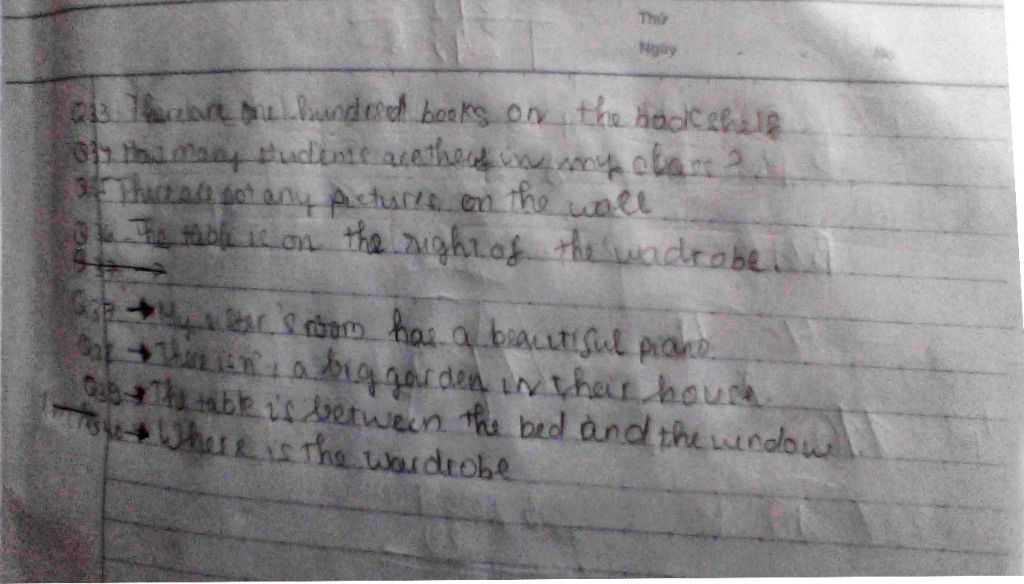 Thứ
Ngày
Q33. There are one hundred books on the bookshels
Q34 How many students are there in my class?
Q35 There are not any pictures on the wall
Q36. The table is on the right of the wadrobe.
Q37 →
Q37 → My sister's room has a beautiful piano.
Q38 → There isn't a big garden in their house.
Q39 → The table is between the bed and the window
→ Where is the wardrobe